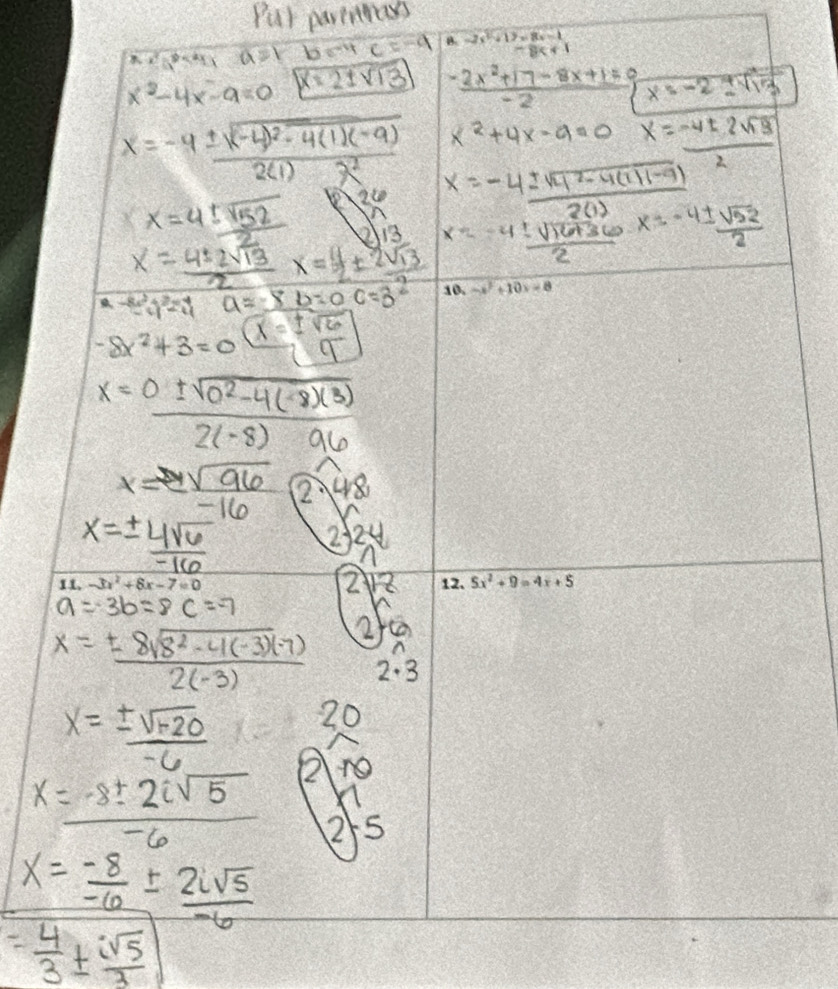 Put parentheses
a=1 b=-4 c=-9
x²-4x-9=0 x=2±√13
x=-4±√(-4)²-4(1)(-9)
2(1)
26
x=4±√52
2
2 13
x=4±2√13 x=4/2±2√13/2
2
-8x+1
-2x²+17-8x+1=0
-2
x=-2±√13
x²+4x-9=0 x=-4±2√13
2
x=-4±√4²-4(1)(-9)
2(1)
x=-4±√16+36 x=-4±√52
2 2
a=-8 b=0 c=3
-8x²+3=0 x=±√6
4
x=0±√0²-4(-8)(3)
2(-8) 96
x=√96
-16
2·48
x=±4√6
-16
2·24
2·12
2·6
2·3
10. -x²+10x=8
11. -3x²+8x-7=0
a=-3 b=8 c=-7
x=±8√8²-4(-3)(-7)
2(-3)
x=±√-20 20
-6
2·10
x=-8±2i√5
-6
2·5
x=-8/-6±2i√5/-6
=4/3±i√5/3
12. 5x²+9=4x+5